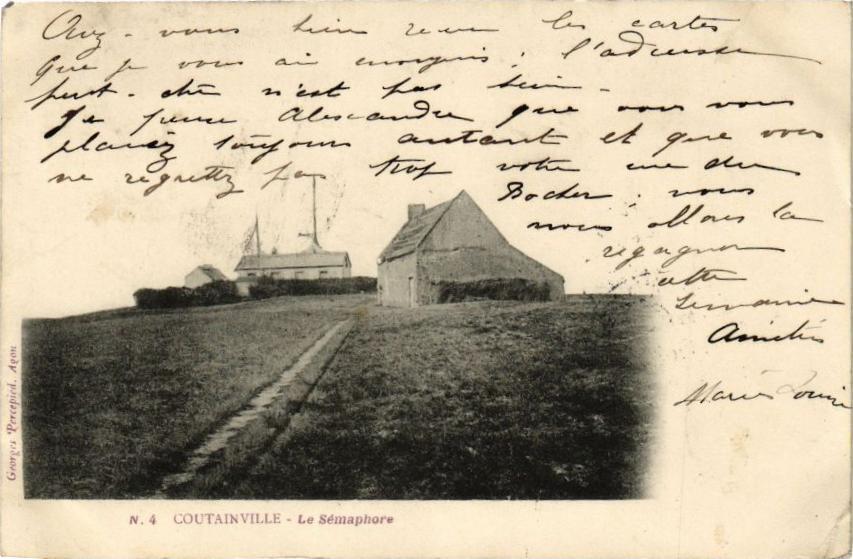 Avez-vous bien reçu les cartes
Que je vous ai envoyées; l'adresse
peut-être n'est pas bien.
Je pense Alexandre que vous vous
plaisez toujours autant et que vous
ne regrettez pas trop votre rue du
Rocher; nous
nous allons la
regagner
cette
semaine
Amitiés
Marie Louise
Georges Percepied, Agon
N. 4 COUTAINVILLE - Le Sémaphore